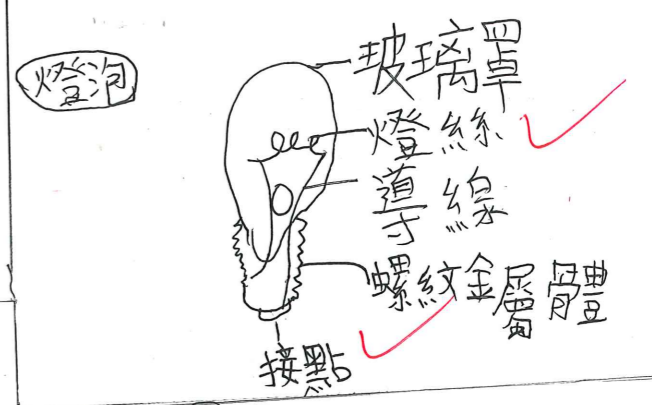 燈泡
玻璃罩
燈絲
導線
螺紋金屬體
接點